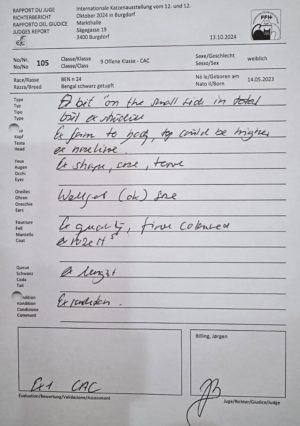 RAPPORT DU JUGE
RICHTERBERICHT
RAPPORTO DEL GIUDICE
JUDGES REPORT
Internationale Katzenausstellung vom 12. und 12.
Oktober 2024 in Burgdorf
Markthalle
Sägegasse 19
3400 Burgdorf
FFH
13.10.2024
No/Nr.
No/No
105
Classe/Klasse
Classe/Class
9 Offene Klasse - CAC
Sexe/Geschlecht
Sesso/Sex
weiblich
Race/Rasse
Razza/Breed
BEN n 24
Bengal schwarz getupft
Né le/Geboren am
Nato il/Born
14.05.2023
Type
Typ
Tipo
Type
A bit on the small side in total
but ex
Tête
Kopf
Testa
Head
Ex form to body, top could be higher
ex noseline.
Yeux
Augen
Occhi
Eyes
Ex shape, size,
Oreilles
Ohren
Orecchie
Ears
Wellset (ok) size
Fourrure
Fell
Mantello
Coat
Ex quality, fine coloured
Queue
Schwanz
Coda
Tail
Ex lenght
Condition
Kondition
Condizione
Comment
Ex condition.
Ex 1 CAC
Evaluation/Bewertung/Validazione/Assessment
Billing, Jørgen
JB
Juge/Richter/Giudice/Judge